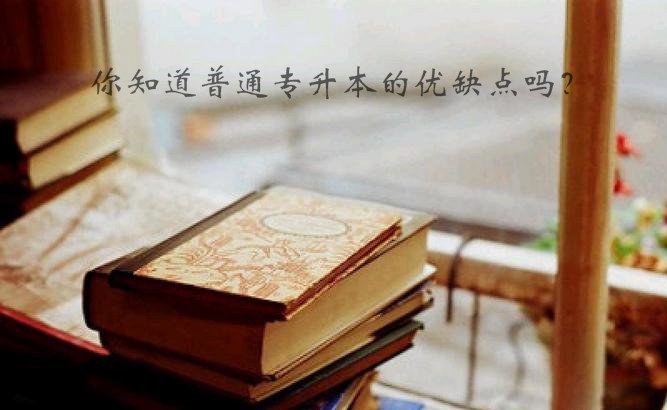 你知道普通专升本的优缺点吗?